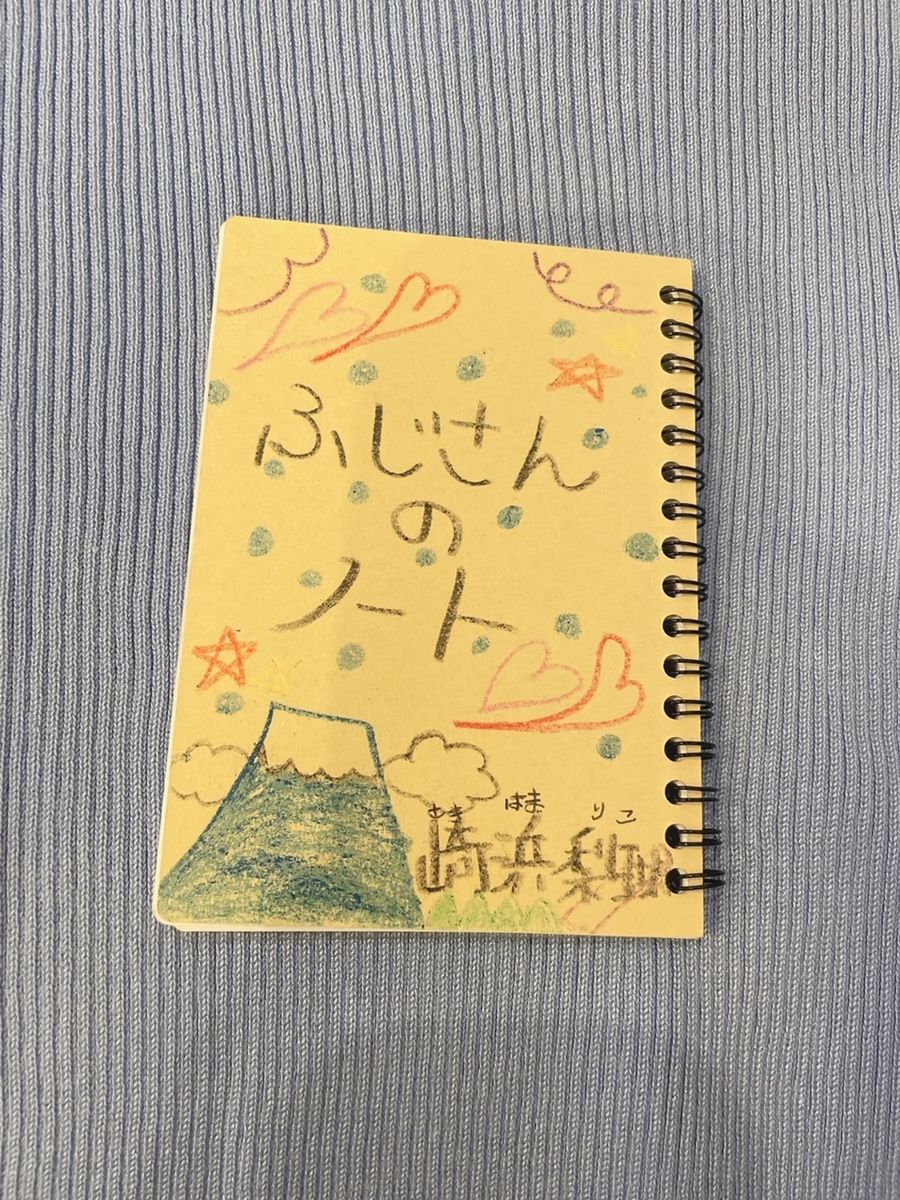 ふじさん
の
ノート
さき はま りこ
崎浜梨瑚